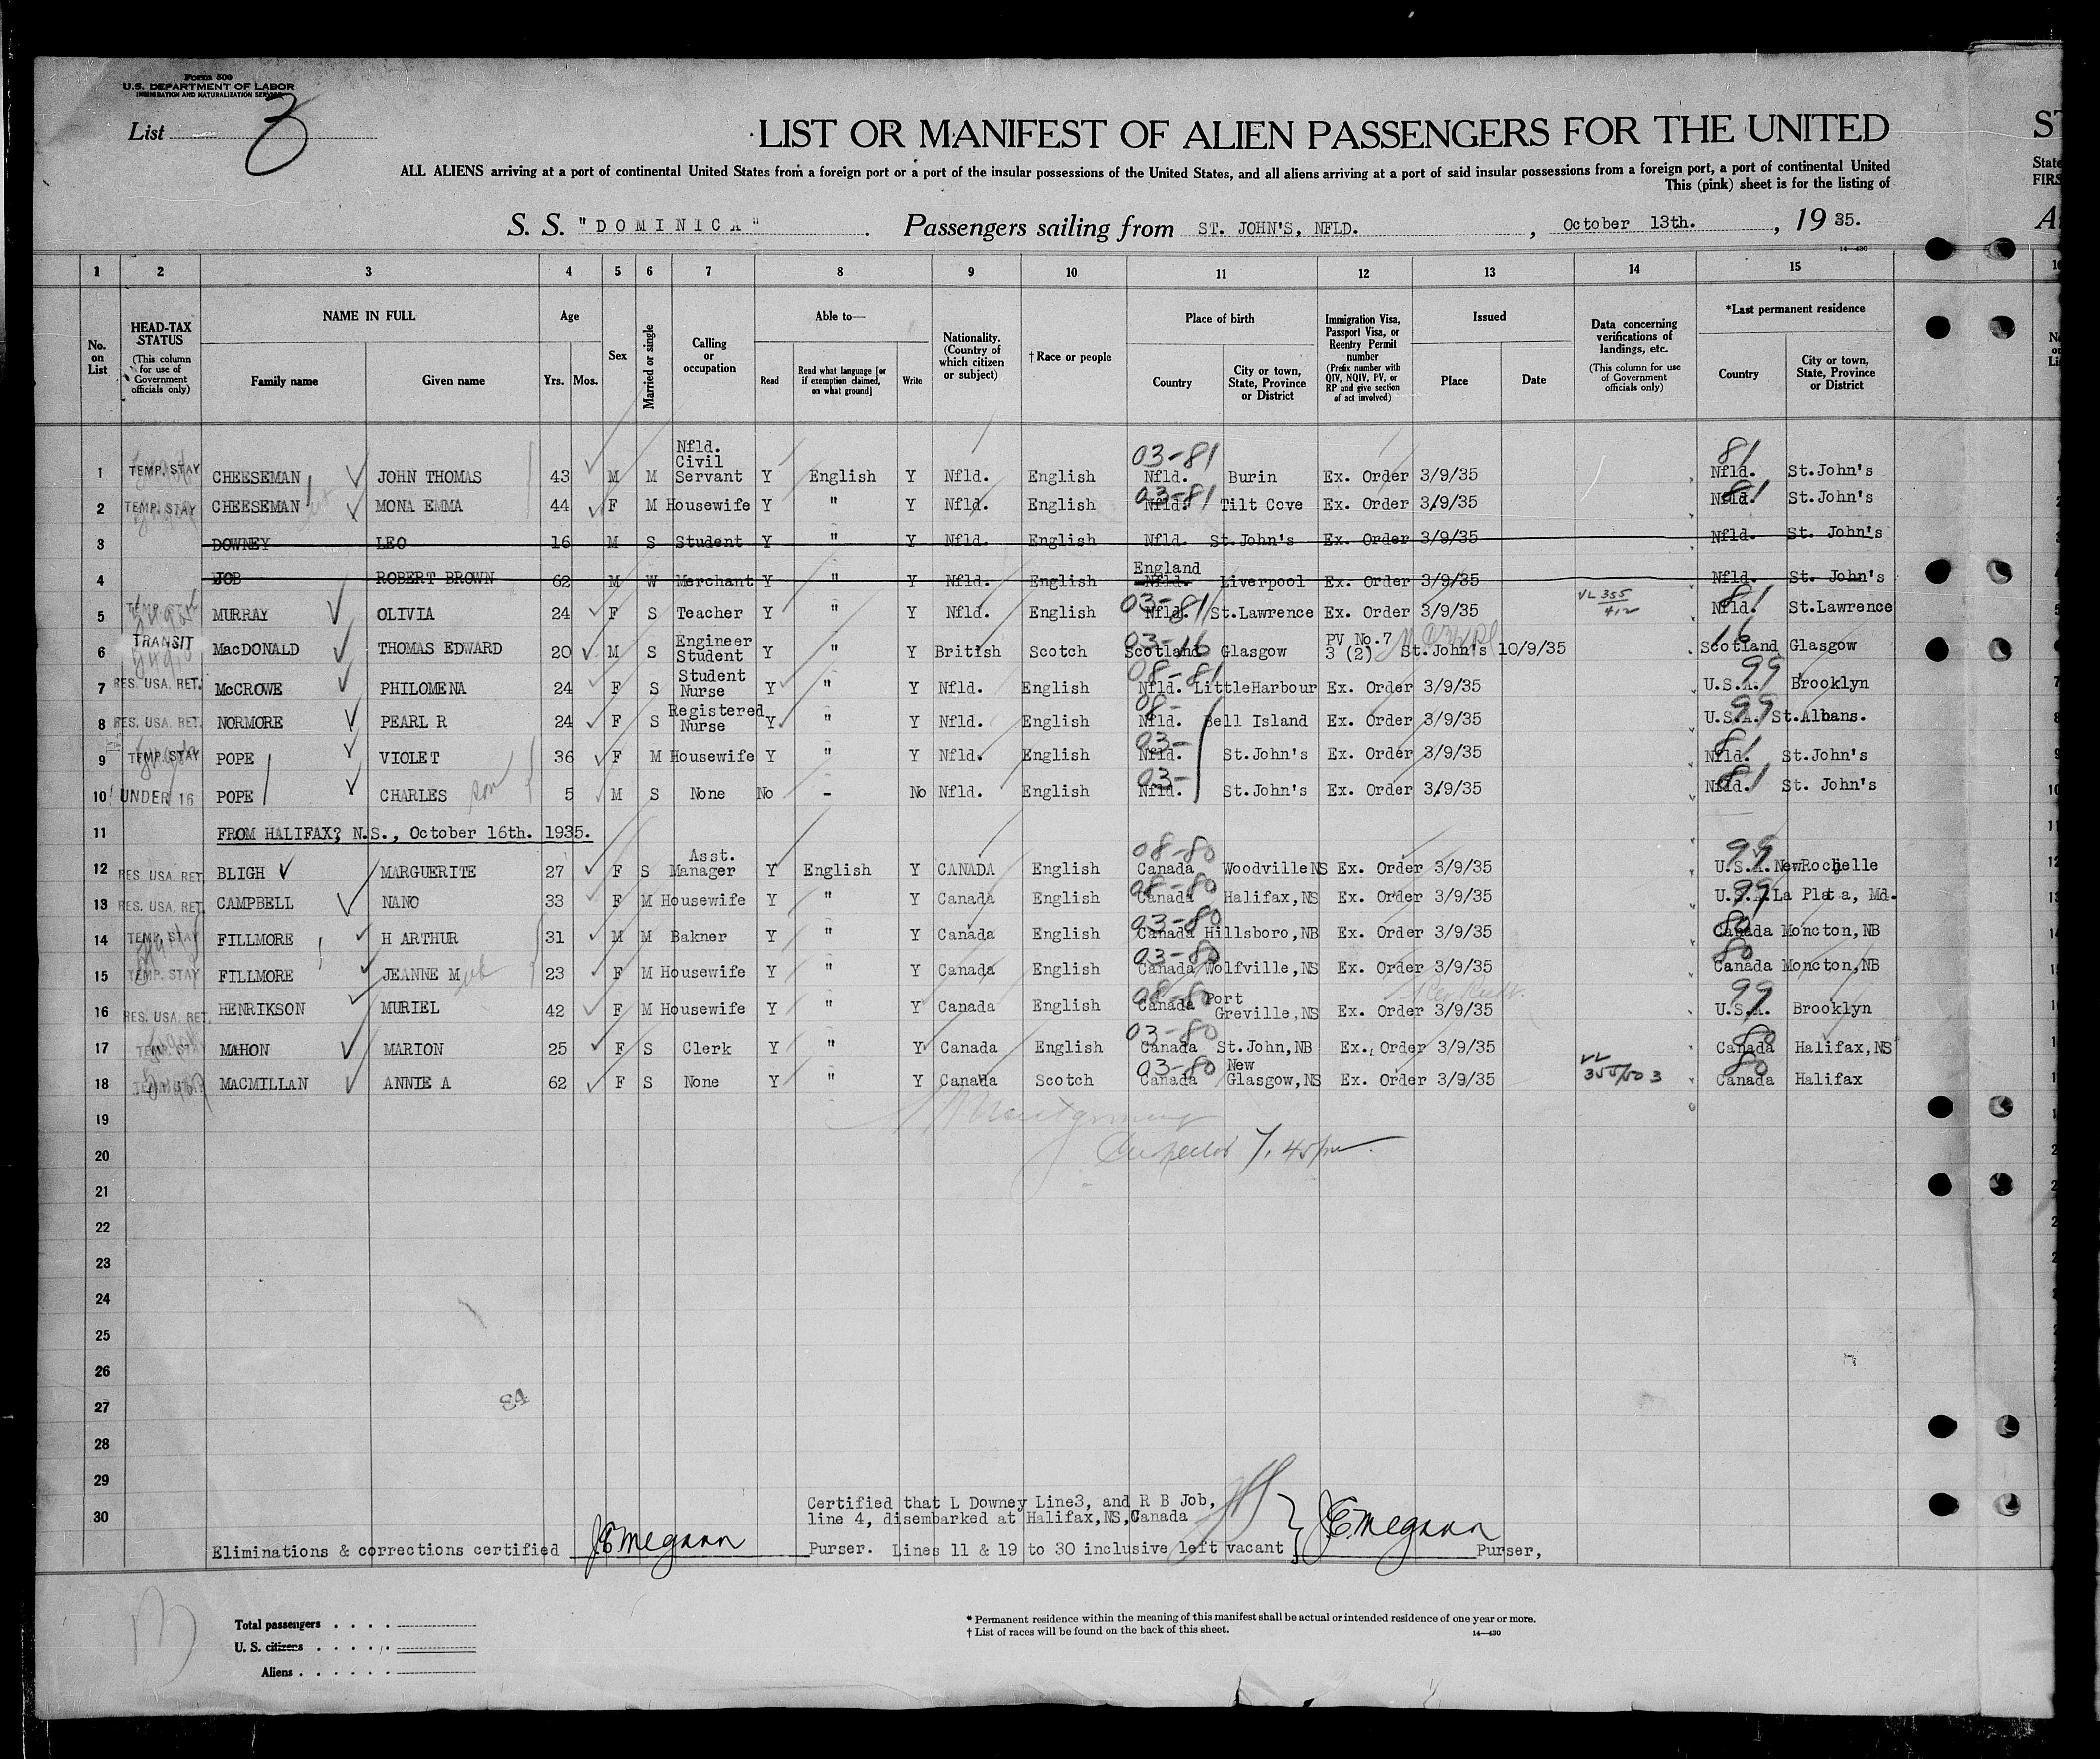 Form 500
U.S. DEPARTMENT OF LABOR
IMMIGRATION AND NATURALIZATION SERVICE
List 3
LIST OR MANIFEST OF ALIEN PASSENGERS FOR THE UNITED ST
ALL ALIENS arriving at a port of continental United States from a foreign port or a port of the insular possessions of the United States, and all aliens arriving at a port of said insular possessions from a foreign port, a port of continental United State
This (pink) sheet is for the listing of FIRS
S. S. "DOMINICA" . Passengers sailing from ST. JOHN'S, NFLD. , October 13th. , 1935.
14-430
1 2 3 4 5 6 7 8 9 10 11 12 13 14 15
No. on List
HEAD-TAX STATUS (This column for use of Government officials only)
NAME IN FULL
Family name
Given name
Age
Yrs. Mos.
Sex
Married or single
Calling or occupation
Able to—
Read
Read what language [or if exemption claimed, on what ground]
Write
Nationality. (Country of which citizen or subject)
†Race or people
Place of birth
Country
City or town, State, Province or District
Immigration Visa, Passport Visa, or Reentry Permit number (Prefix number with QIV, NQIV, PV, or RP and give section of act involved)
Issued
Place
Date
Data concerning verifications of landings, etc. (This column for use of Government officials only)
*Last permanent residence
Country
City or town, State, Province or District
1 TEMP. STAY CHEESEMAN JOHN THOMAS 43 M M Nfld. Civil Servant Y English Y Nfld. English 03-81 Nfld. Burin Ex. Order 3/9/35 81 Nfld. St.John's
2 TEMP. STAY CHEESEMAN MONA EMMA 44 F M Housewife Y " Y Nfld. English 03-81 Nfld. Tilt Cove Ex. Order 3/9/35 81 Nfld. St.John's
3 DOWNEY LEO 16 M S Student Y " Y Nfld. English Nfld. St.John's Ex. Order 3/9/35 Nfld. St. John's
4 JOB ROBERT BROWN 62 M W Merchant Y " Y Nfld. English England Nfld. Liverpool Ex. Order 3/9/35 Nfld. St. John's
5 TEMP. STAY MURRAY OLIVIA 24 F S Teacher Y " Y Nfld. English 03-81 Nfld. St.Lawrence Ex. Order 3/9/35 VL 355/412 81 Nfld. St.Lawrence
6 TRANSIT MacDONALD THOMAS EDWARD 20 M S Engineer Student Y " Y British Scotch 03-16 Scotland Glasgow PV No.7 3 (2) St.John's 10/9/35 16 Scotland Glasgow
7 RES. USA. RET. McCROWE PHILOMENA 24 F S Student Nurse Y " Y Nfld. English 08-81 Nfld. LittleHarbour Ex. Order 3/9/35 99 U.S.A. Brooklyn
8 RES. USA. RET. NORMORE PEARL R 24 F S Registered Nurse Y " Y Nfld. English 08- Nfld. Bell Island Ex. Order 3/9/35 99 U.S.A. St.Albans.
9 TEMP. STAY POPE VIOLET 36 F M Housewife Y " Y Nfld. English 03- Nfld. St.John's Ex. Order 3/9/35 81 Nfld. St.John's
10 UNDER 16 POPE CHARLES son 5 M S None No - No Nfld. English 03- Nfld. St.John's Ex. Order 3/9/35 81 Nfld. St. John's
11 FROM HALIFAX?, N.S., October 16th. 1935.
12 RES. USA. RET. BLIGH MARGUERITE 27 F S Asst. Manager Y English Y CANADA English 08-80 Canada WoodvilleNS Ex. Order 3/9/35 99 U.S.A. NewRochelle
13 RES. USA. RET. CAMPBELL NANO 33 F M Housewife Y " Y Canada English 08-80 Canada Halifax,NS Ex. Order 3/9/35 99 U.S.A. La Plata, Md.
14 TEMP. STAY FILLMORE H ARTHUR 31 M M Bakner Y " Y Canada English 03-80 Canada Hillsboro,NB Ex. Order 3/9/35 80 Canada Moncton,NB
15 TEMP. STAY FILLMORE JEANNE M 23 F M Housewife Y " Y Canada English 03-80 Canada Wolfville,NS Ex. Order 3/9/35 80 Canada Moncton,NB
16 RES. USA. RET. HENRIKSON MURIEL 42 F M Housewife Y " Y Canada English 08-80 Canada Port Greville,NS Ex. Order 3/9/35 99 U.S.A. Brooklyn
17 TEMP. STAY MAHON MARION 25 F S Clerk Y " Y Canada English 03-80 Canada St.John,NB Ex. Order 3/9/35 80 Canada Halifax,NS
18 MACMILLAN ANNIE A 62 F S None Y " Y Canada Scotch 03-80 Canada New Glasgow,NS Ex. Order 3/9/35 VL 355/503 80 Canada Halifax
19
Montgomery
20 Inspector 7.45pm
21
22
23
24
25
26
27 84
28
29
30 Certified that L Downey Line3, and R B Job,
line 4, disembarked at Halifax,NS,Canada
Eliminations & corrections certified JEMegann Purser. Lines 11 & 19 to 30 inclusive left vacant JEMegann Purser,
Total passengers
U. S. citizens
Aliens
* Permanent residence within the meaning of this manifest shall be actual or intended residence of one year or more.
† List of races will be found on the back of this sheet.
14-430